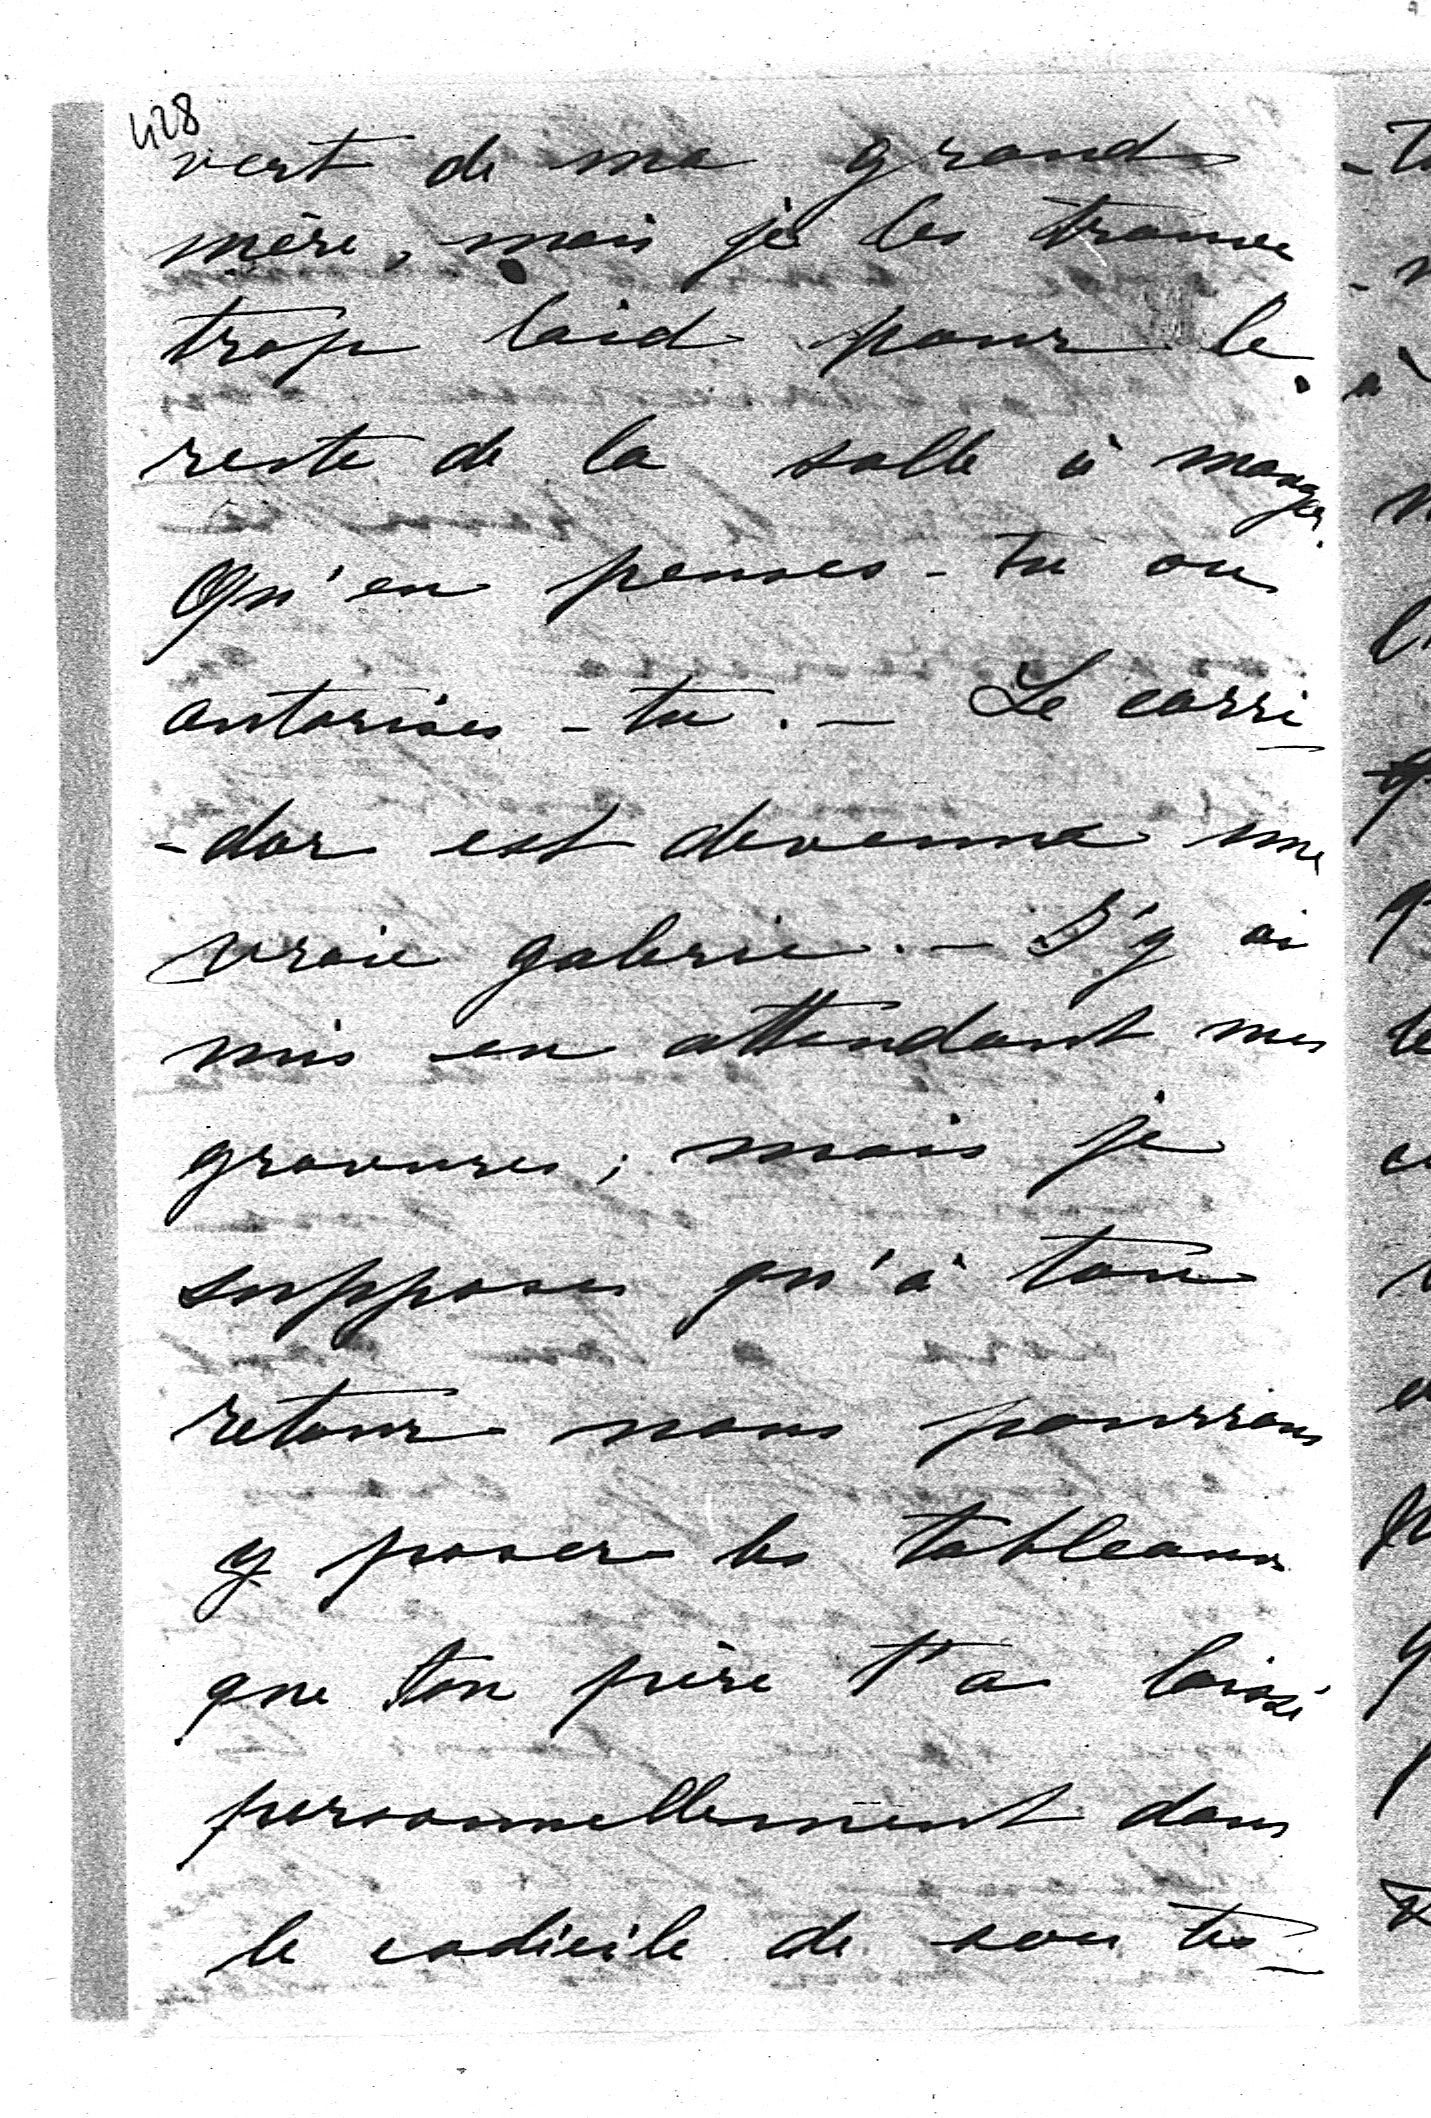 428
vert de ma grand
mère, mais je les trouve
trop laid pour le
reste de la salle à manger.
Qu'en penses-tu ou
autorises-tu. — Le corri
-dor est devenu une
vraie galerie. — J'y ai
mis en attendant mes
gravures; mais je
supposes qu'à ton
retour nous pourrons
y poser les tableaux
que ton père t'a laissé
personnellement dans
le codicile de son tes-